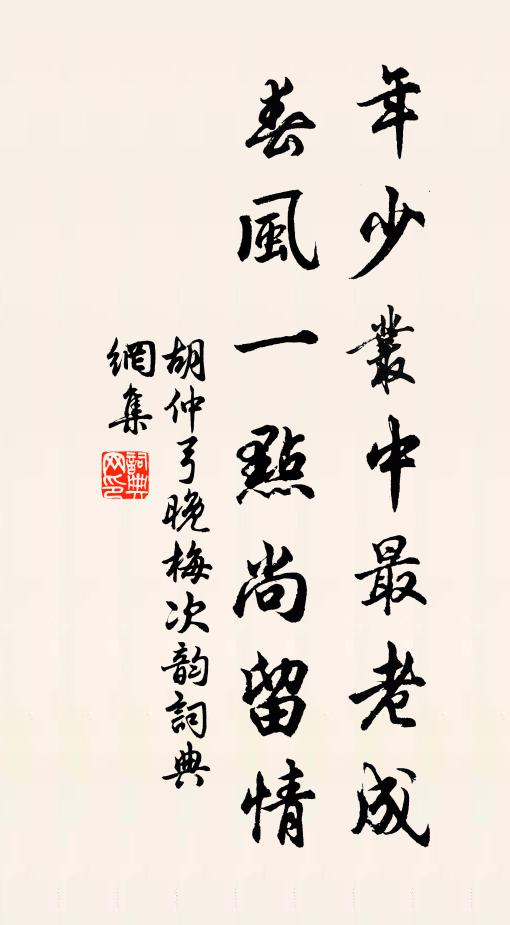 年少叢中最老成
春風一點尚留情
胡仲弓晚梅次韵詞典
網集
詞典
网印